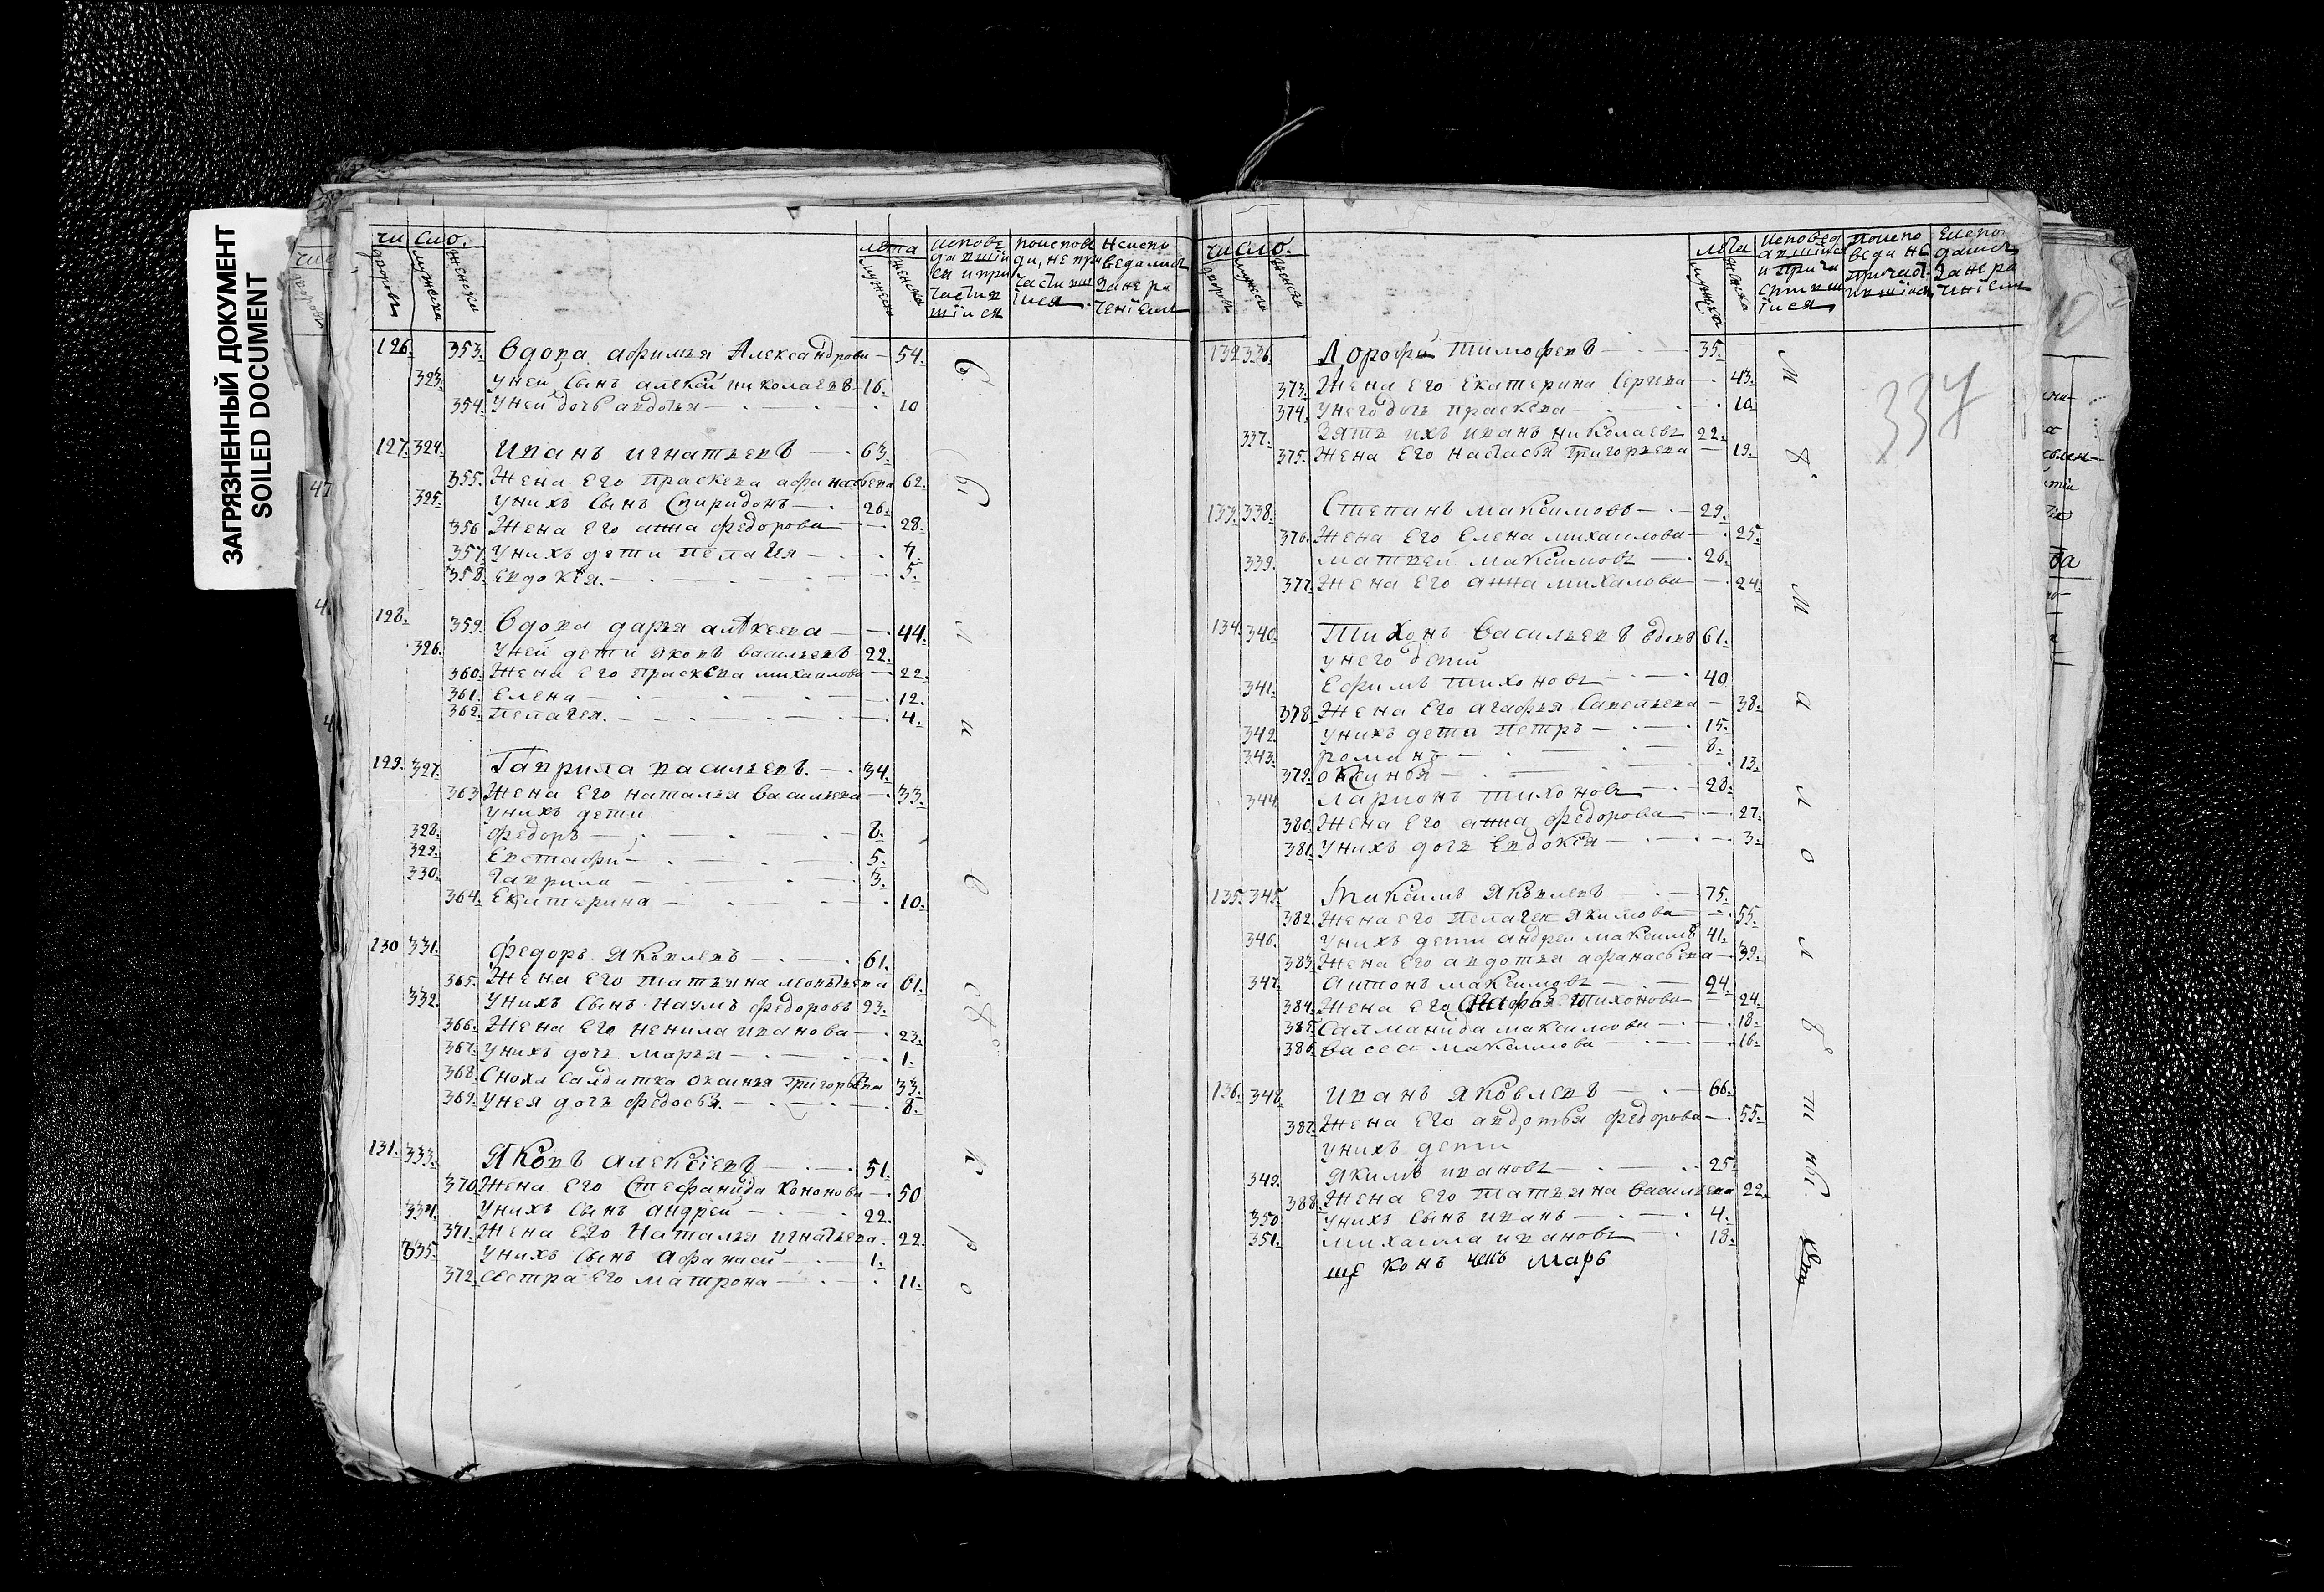 ЗАГРЯЗНЕННЫЙ ДОКУМЕНТ
SOILED DOCUMENT
число. лета
126. 353. Вдова афимья Александрова 54.
323. у ней сынъ алексей николаевъ 16.
354. у ней дочь авдотья 10
127. 324. Иванъ игнатьевъ 63.
355. Жена его Праскева афанасьева 62.
325. у нихъ сынъ Спиридонъ 26.
356 Жена его анна федорова 28.
357. у нихъ дети пелагия 7.
358. евдокея. 5.
128. 359. Вдова дарья алѣксеева 44.
326. у ней дети яковъ васильевъ 22.
360. Жена его праскева михаилова 22.
361. елена 12.
362. пелагея. 4.
129. 327. Гаврила васильевъ. 34.
363 Жена его наталья васильева 33.
у нихъ дети
328. федоръ 8.
329. евстафи 5.
330. гаврила 3.
364. екатерина 10.
130 331. федоръ яковлевъ 61.
365. Жена его татьяна леонтьева 61.
332. у нихъ сынъ наумъ федоровъ 23.
366. Жена его ненила иванова 23.
367. у нихъ дочь марья 1.
368. Сноха салдатка оксинья григорьева 33.
369. у нея дочь федосья. 8.
131. 333. Яковъ алексіевъ 51.
370 Жена его Стефанида кононова 50
334. у нихъ сынъ андрей 22.
371. Жена его Наталья игнатьева. 22.
335. у нихъ сынъ афанасй 1.
372. сестра его матрона 11.
число. лѣта
337
132 336. Дорофй тимофевъ 35.
373. Жена его екатерина сергева 43.
374. у него дочь праскева 10.
337. Зять ихъ иванъ николаевъ 22.
375. Жена его настасья григорьева 19.
133. 338. Степанъ максимовъ 29.
376. Жена его елена михаилова 25.
339. матвей максимовъ 26.
377. Жена его анна михалова 24.
134. 340. Тихонъ васильевъ вдовъ 61.
у него дети
341. Ефимъ тихоновъ 40
378. Жена его агафья савельева 38.
342. у нихъ дета петръ 15.
343. романъ 8.
379. оксинья 13.
344 ларионъ тихоновъ 28.
380. Жена его анна федорова 27.
381. у нихъ дочь евдокея 3.
135. 345. Максимъ яковлевъ 75.
382. Жена его пелагея якимова 55.
346. у нихъ дети андрей максимовъ 41.
383. Жена его авдотья афанасьева 39.
347. антонъ максимовъ 24.
384. Жена его тихонова 24.
385. Салманида максимова 18.
386. васса максимова 16.
136. 348. иванъ яковлевъ 66.
387. Жена его авдотья федорова 55.
у нихъ дети
349. якимъ ивановъ 25.
388. Жена его татьяна васильева 22.
350 у нихъ сынъ иванъ 4.
351. михаила ивановъ 18.